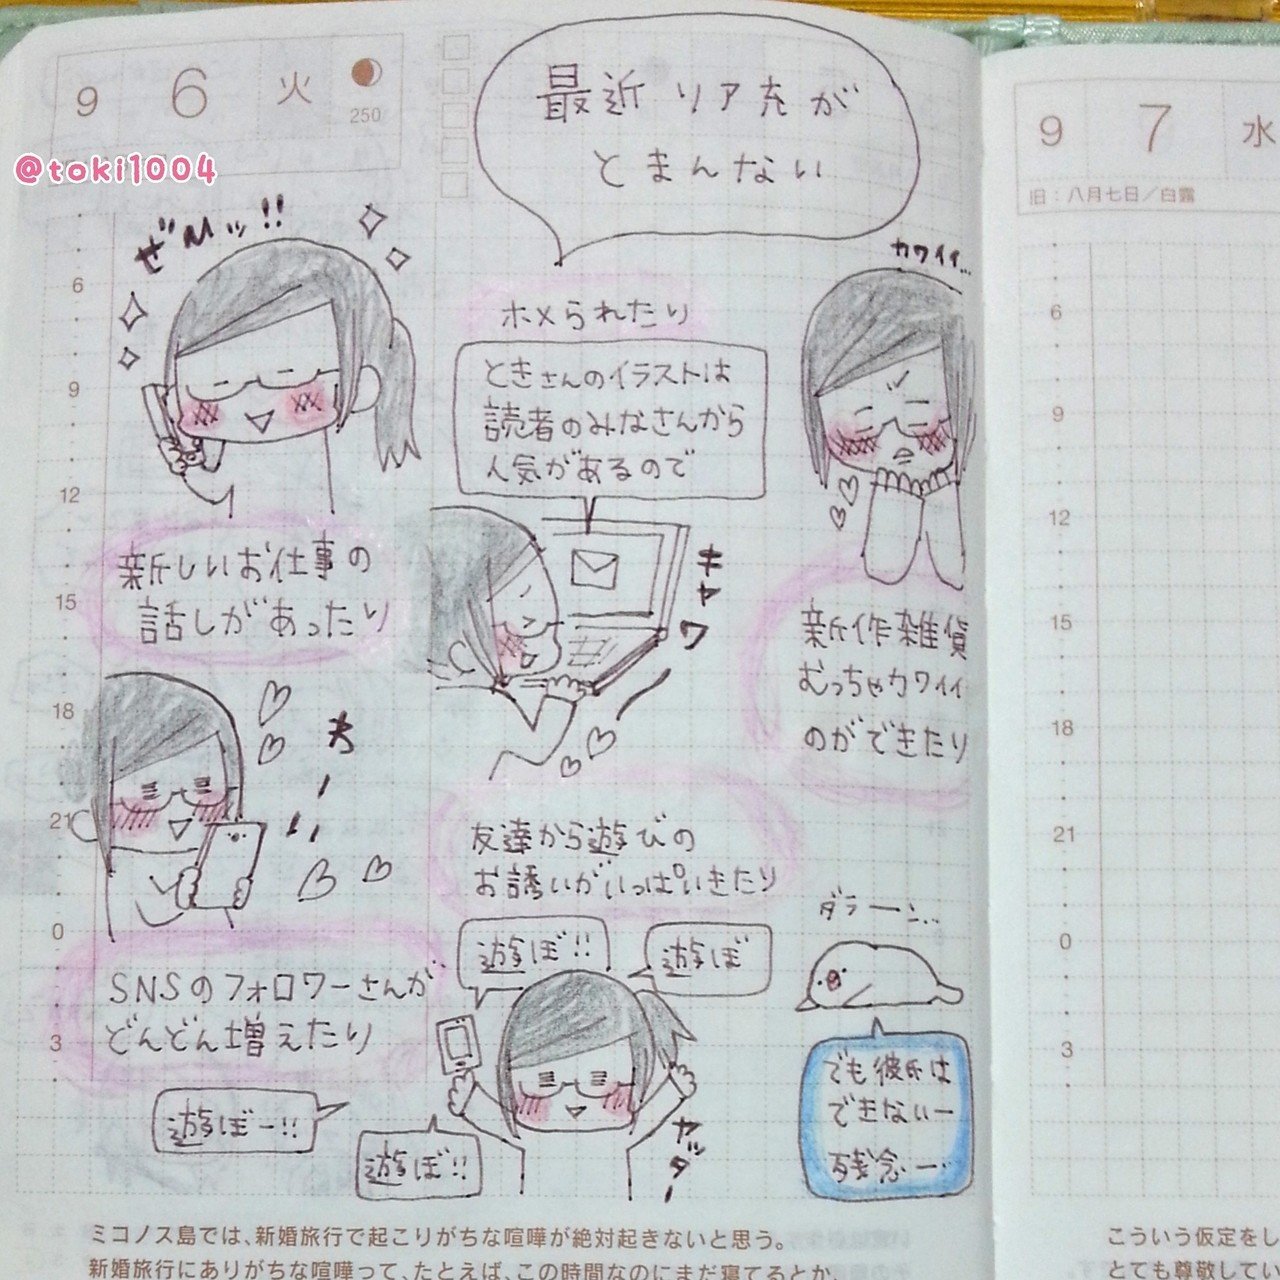 9 6 火
250
@toki1004
最近リア充が
とまんない
ぜひッ!!
新しいお仕事の
話しがあったり
ホメられたり
ときさんのイラストは
読者のみなさんから
人気があるので
キャワ
カワイイ…
新作雑貨
むっちゃカワイイ
のができたり
SNSのフォロワーさんが
どんどん増えたり
友達から遊びの
お誘いがいっぱいきたり
遊ぼ!!
遊ぼ
遊ぼー!!
遊ぼ!!
ヤッター
ダラーン…
でも彼氏は
できないー
残念ー…
6
9
12
15
18
21
0
3
ミコノス島では、新婚旅行で起こりがちな喧嘩が絶対起きないと思う。
新婚旅行にありがちな喧嘩って、たとえば、この時間なのにまだ寝てるとか、
9 7 水
旧：八月七日／白露
6
9
12
15
18
21
0
3
こういう仮定をし
とても尊敬してい